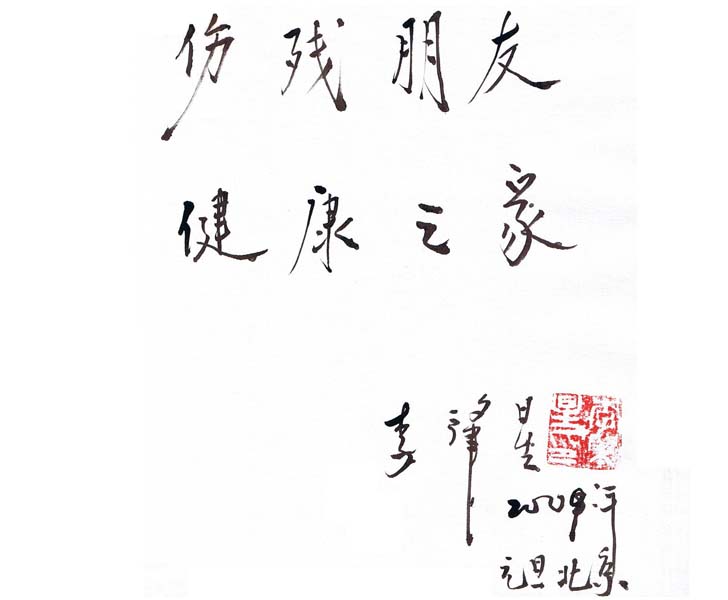 伤残朋友
健康之家
李肇星
2009年
元旦北京